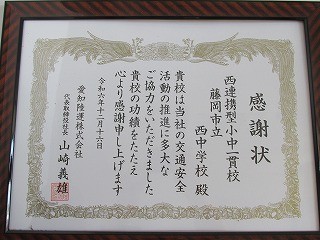 感謝状
西連携型小中一貫校
藤岡市立
西中学校 殿
貴校は当社の交通安全
活動の推進に多大な
ご協力をいただきました
貴校の功績をたたえ
心より感謝申し上げます
令和六年十二月十二日
愛知陸運株式会社
代表取締役社長 山崎義雄